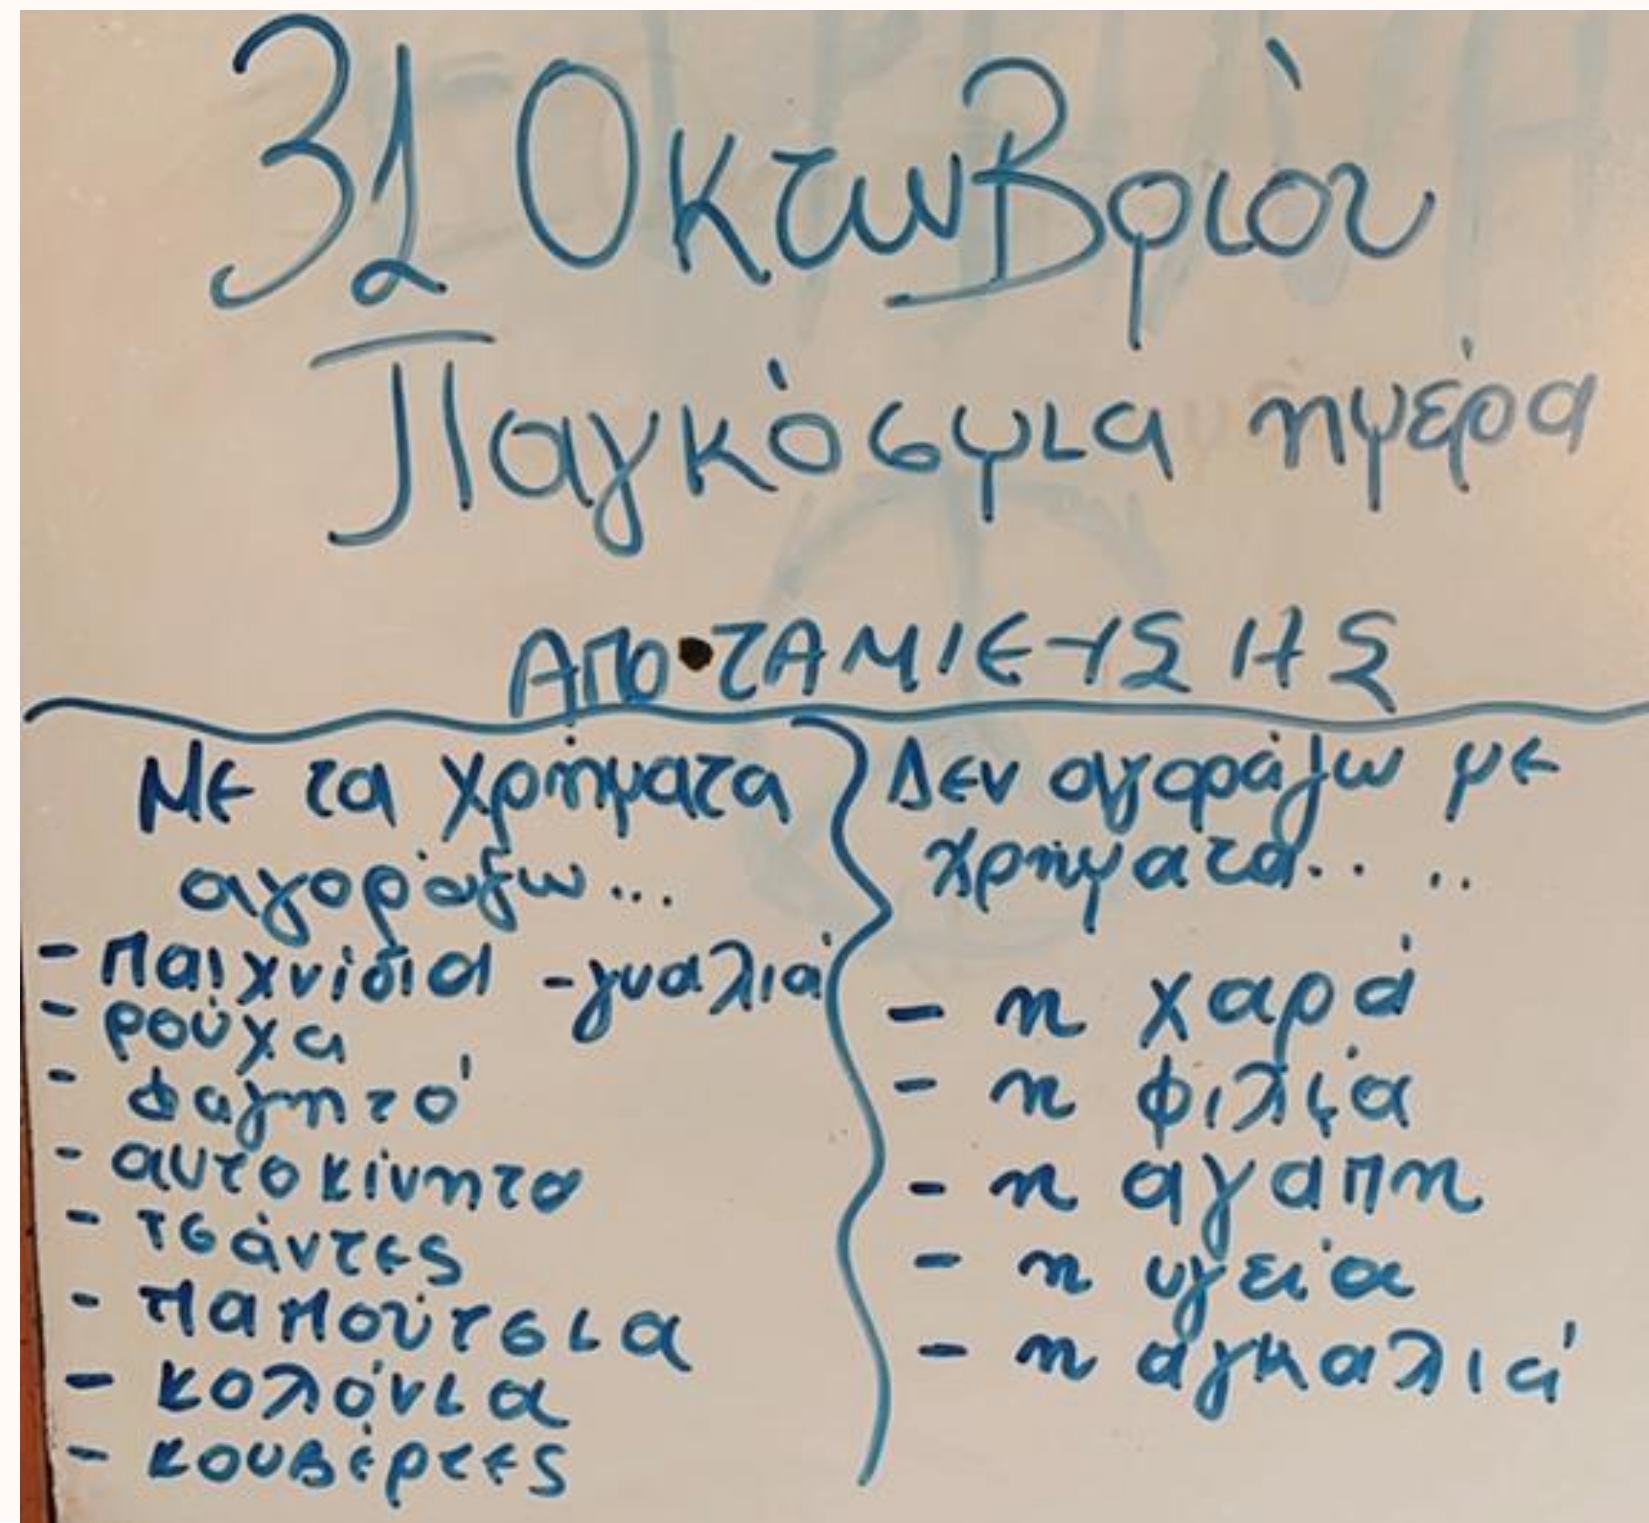 31 Οκτωβρίου
Παγκόσμια ημέρα
ΑΠΟΤΑΜΙΕΥΣΗΣ
Με τα χρήματα
αγοράζω...
- παιχνίδια - γυαλιά
- ρούχα
- φαγητό
- αυτοκίνητο
- τσάντες
- παπούτσια
- κολόνια
- κουβέρτες
Δεν αγοράζω με
χρήματα.. ..
- η χαρά
- η φιλία
- η αγάπη
- η υγεία
- η αγκαλιά